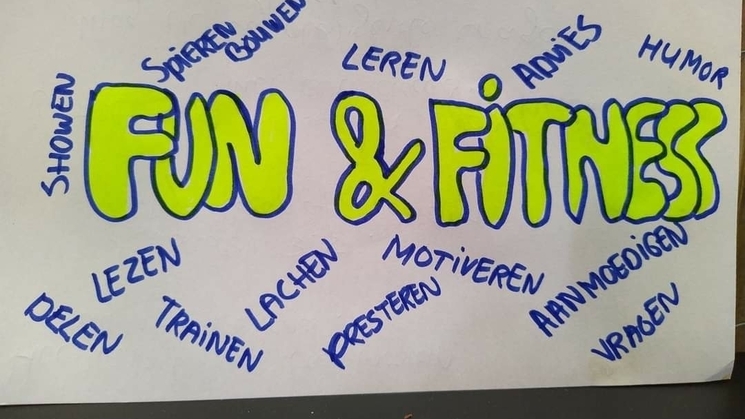 SPIEREN BOUWEN
LEREN
ADVIES
HUMOR
SHOWEN
FUN & FiTNESS
LEZEN
DELEN
TRAINEN
LACHEN
MOTiVEREN
PRESTEREN
AANMOEDIGEN
VRAGEN